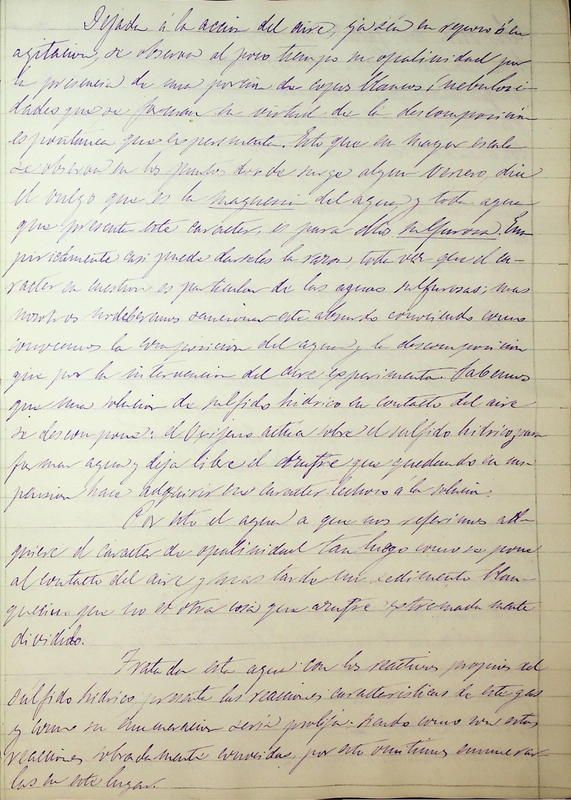 Dejada á la accion del aire, ya sea en reposo ó en
agitacion, se observa al poco tiempo su opalinidad por
la presencia de una porcion de copos blancos ó nebulosi-
dades que se forman en virtud de la descomposicion
espontánea que esperimenta. Esto que en mayor escala
se observa en los puntos donde surge algun venero, dice
el vulgo que es la magnesia del agua, y toda agua
que presente este caracter, es para ellos sulfurosa. Em-
piricamente casi puede darseles la razon, toda vez que el ca-
racter en cuestion es particular de las aguas sulfurosas; mas
nosotros no debemos sancionar este absurdo conociendo como
conocemos la composicion del agua y la descomposicion
que por la intervencion del aire esperimenta. Sabemos
que una solucion de sulfido hidrico en contacto del aire
se descompone: el Oxigeno actua sobre el sulfido hidrico para
formar agua y deja libre el azufre que quedando en sus-
pension hace adquirir ese caracter lechoso á la solucion.
Por esto el agua a que nos referimos ad-
quiere el caracter de opalinidad tan luego como se pone
al contacto del aire y mas tarde un sedimento blan-
quecino que no es otra cosa que azufre estremadamente
dividido.
Tratada esta agua con los reactivos propios del
sulfido hidrico, presenta las reacciones caracteristicas de este gas
y como su enumeracion seria prolija, siendo como son estas
reacciones sobradamente conocidas, por esto omitimos enumerar-
las en este lugar.